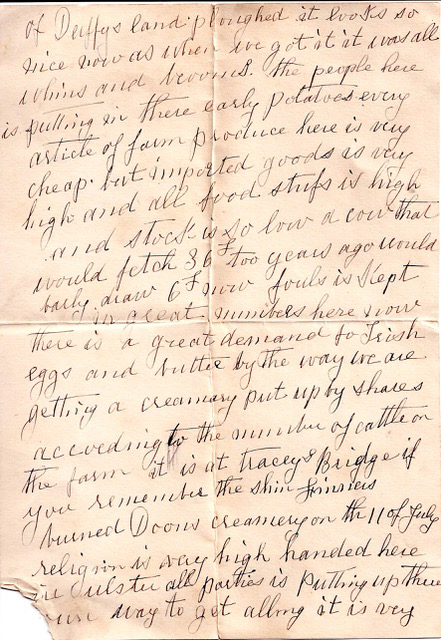 of Duffys land ploughed it looks so
nice now as when we got it it was all
whins and brooms. the people here
is putting in there early potatoes every
article of farm produce here is very
cheap but imported goods is very
high and all food stufs is high
and stock is so low a cow that
would fetch 36£ too years ago would
barly draw 6£ now fouls is Kept
in great numbers here now
there is a great demand fo Irish
eggs and butter by the way we are
getting a creamery put up by shares
according to the number of cattle on
the farm it is at Traceys Bridge if
you remember the Shin
burned Doons creamery on th 11 of July
religion is very high handed here
in Ulster all parties is putting up there
own way to get along it is very